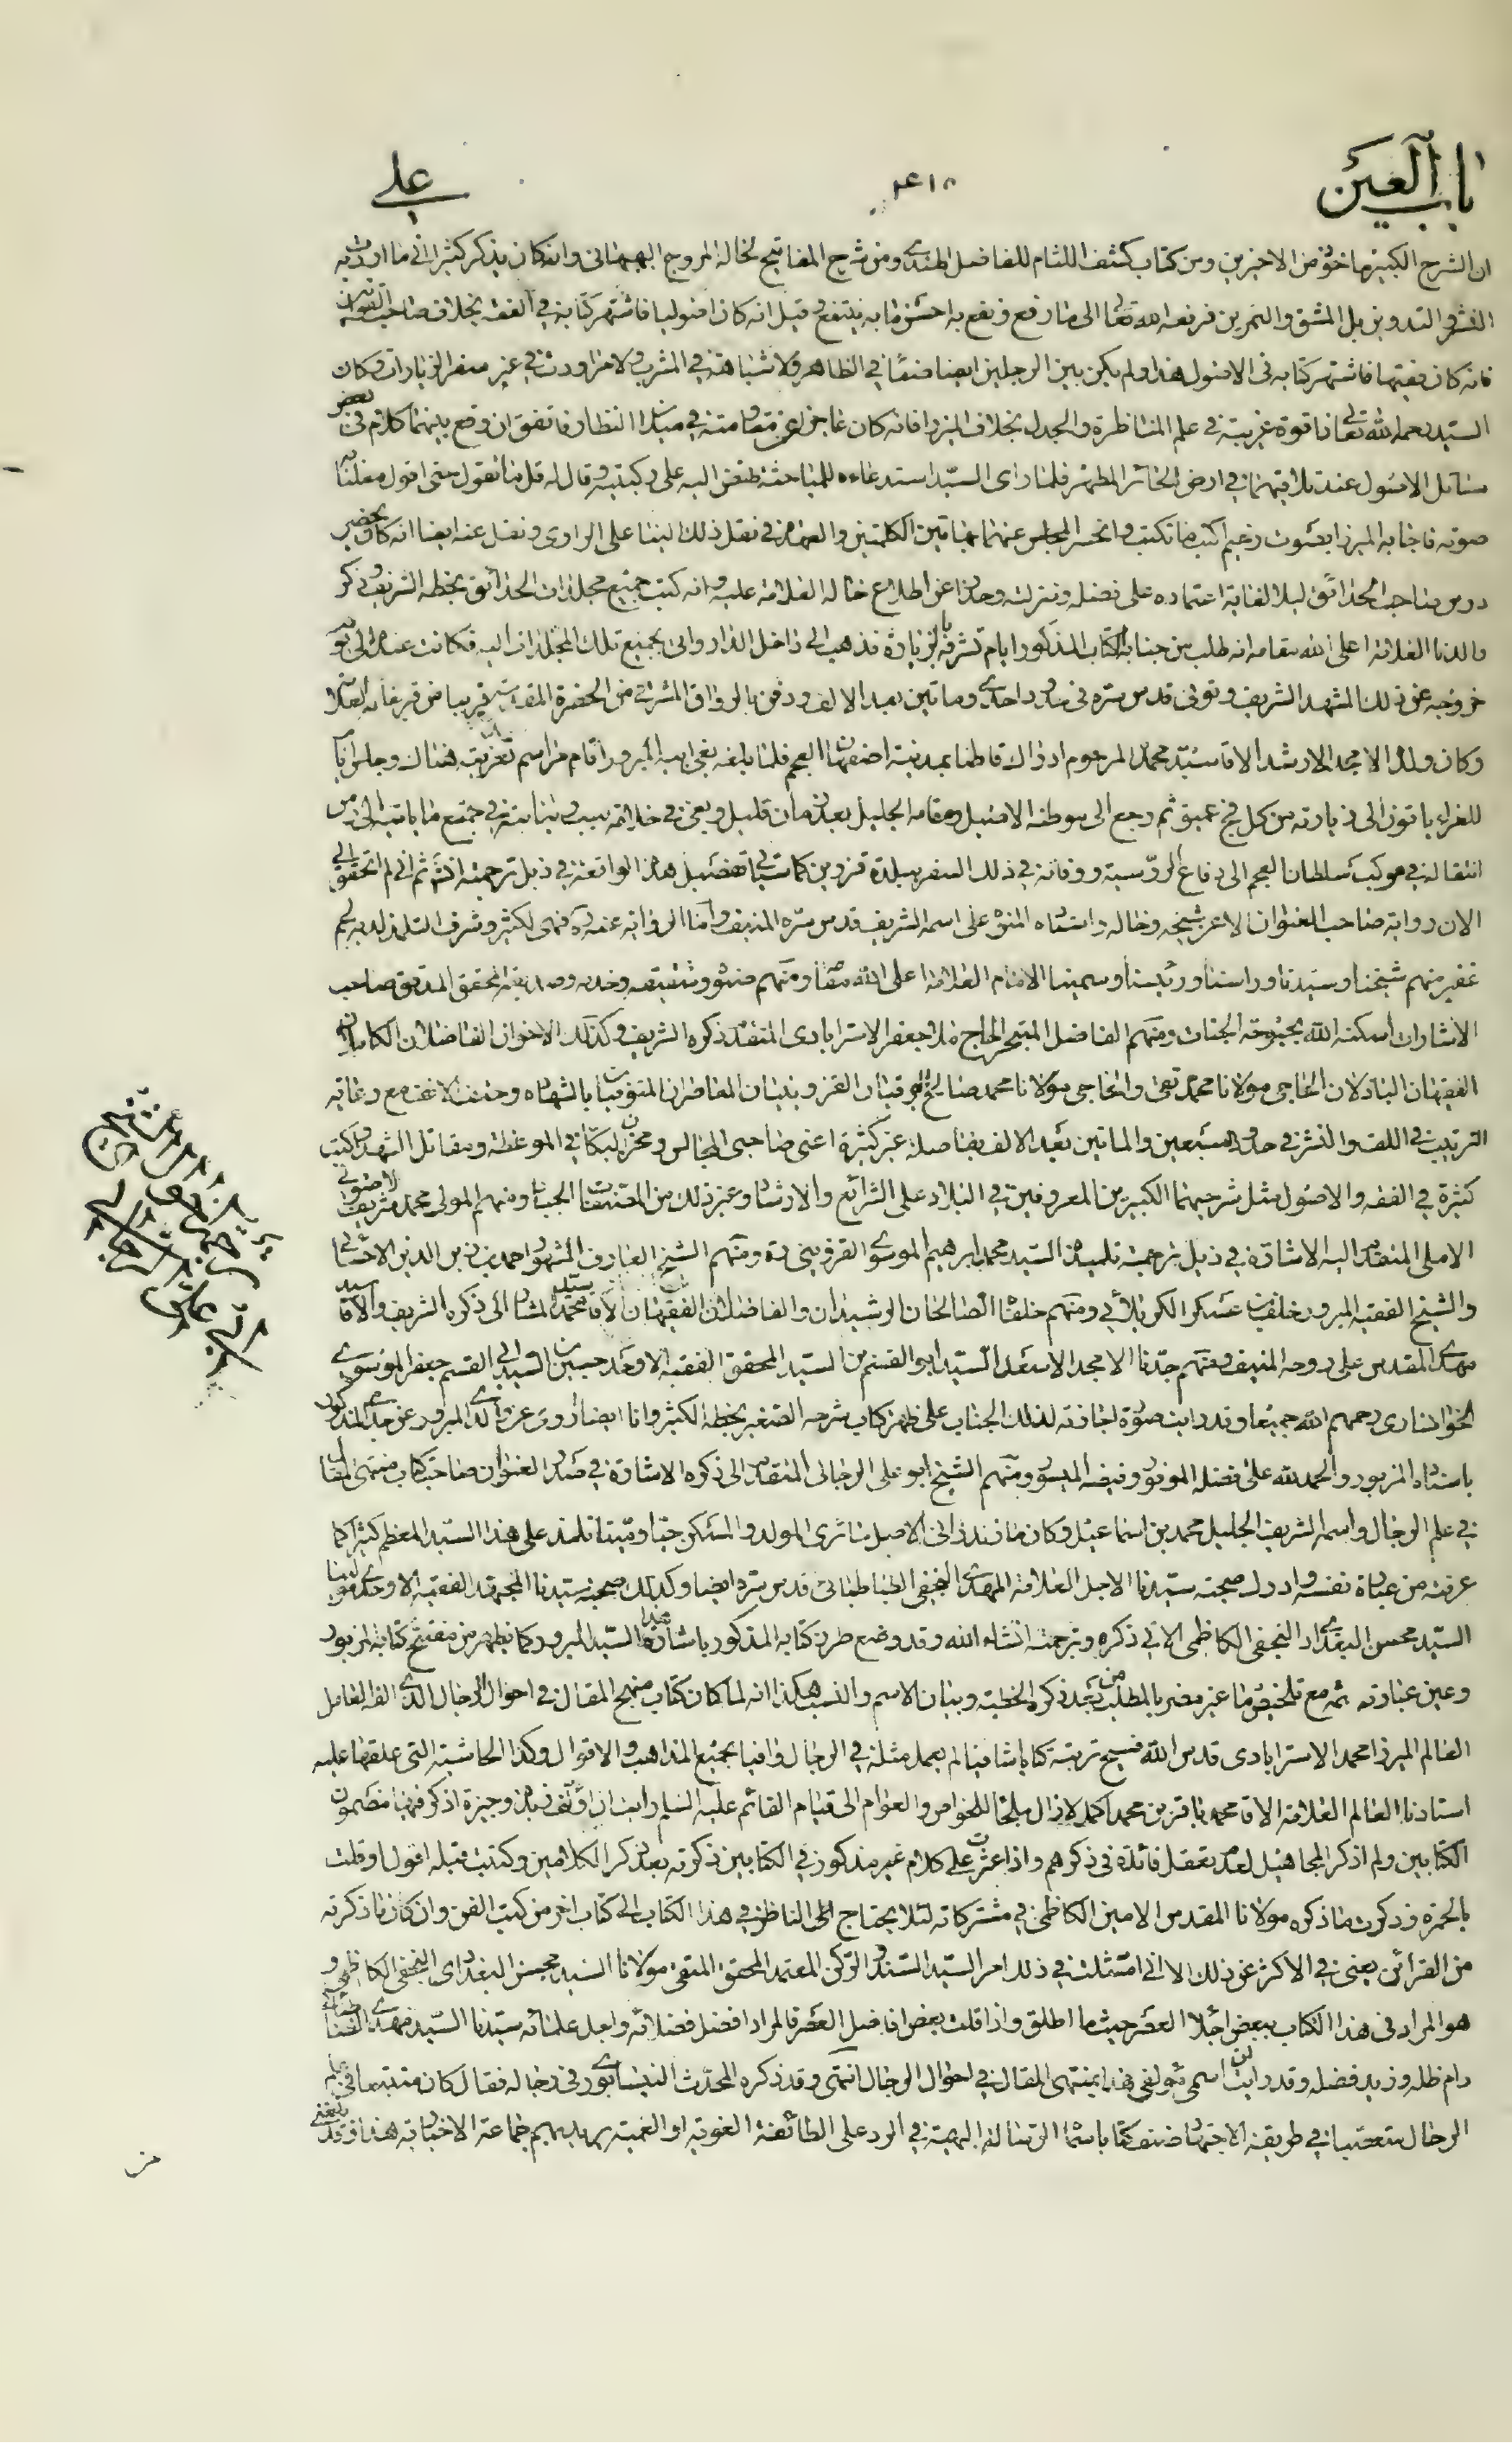 باب العين
٤١٥
علي
ان الشرح الكبير مأخوذ من الاخيرين ومن كتاب كشف اللثام للفاضل الهندي ومن شرح المفاتيح لخاله المروج البهبهاني وانه كان يذكر كثيرا اني ما اردت به
النشر والتدوين بل المشق والتمرين فرفعه الله تعالى الى ما رفع ونفع به احسن ما به ينتفع وقيل انه كان اصوليا فاشتهر كتابه في الفقه بخلاف صاحب القوانين
فانه كان فقيها فاشتهر كتابه في الاصول هذا ولم يكن بين الرجلين ايضا صفاء في الظاهر ولا شباهة في المشرب ولا مراودة في غير سفر الزيارات وكان
السيد رحمه الله تعالى ذا قوة غريبة في علم المناظرة والجدل بخلاف الميرزا فانه كان عاجزا عن مقاومته في ميدان النظار فاتفق ان وقع بينهما كلام في بعض
مسائل الاصول عند تلاقيهما في ارض الحائر المطهر فلما رأى السيد استدعاءه للمباحثة طفق اليه على ركبتيه وقال له قل ما تقول حتى اقول معلنا به
صوته فاجابه الميرزا بصوت رخيم اكتب ما تكتب وانحسر المجلس عنهما بهاتين الكلمتين والعهدة في نقل ذلك لنا على الراوي ونقل عنه ايضا انه كان يحضر
درس صاحب الحدائق ليلا لغاية اعتماده على فضله ومنزلته وحذرا عن اطلاع خاله العلامة عليه وانه كتب جميع مجلدات الحدائق بخطه الشريف وذكر
والدنا العلامة اعلى الله مقامه انه طلب من جنابه الكتاب المذكور ايام تشرفه بالزيارة فذهب الى داخل الدار واتى بجميع تلك المجلدات اليه فكانت عنده الى يوم
خروجه عن ذلك المشهد الشريف وتوفي قدس سره في حدود احدى وماتين بعد الالف ودفن بالرواق المشرقي من الحضرة المقدسة قريبا من قبر خاله العلامة
وكان ولده الامجد الارشد الاقا سيد محمد المرحوم اذ ذاك قاطنا بمدينة اصفهان العجم فلما بلغه نعي ابيه المبرور اقام مراسم تعزيته هناك وجلس اياما
للعزاء ياتون الى زيارته من كل فج عميق ثم رجع الى موطنه الاصيل ومقامه الجليل بعد زمان قليل وبقي
انتقاله في موكب سلطان العجم الى دفاع الروسية ووفاته في ذلك السفر ببلدة قزوين كما سيأتي تفصيل هذه الواقعة في ذيل ترجمته انشاء ثم اني لم اتحقق الى
الان رواية صاحب العنوان الا عن شيخه وخاله واستاده المنوه على اسمه الشريف قدس سره المنيف واما الرواية عنه ره فهي لكثير وشرف التلمذ لديه لجم
غفير منهم شيخنا وسيدنا وراسنا ورئيسنا وسمينا الامام العلامة اعلى الله مقامه ومنهم صنوه وشقيقه وخدنه وصديقه المحقق المدقق صاحب
الاشارات اسكنه الله بحبوحة الجنات ومنهم الفاضل المتبحر الحاج ملا جعفر الاسترابادي المتقدم ذكره الشريف وكذلك الاخوان الفاضلان الكاملان
الفقيهان الباذلان الحاجي مولانا محمد تقي والحاجي مولانا محمد صالح البرقيان القزوينيان المعاصران المتوفيان بالشهادة وحتف الانف مع رعاية
الترتيب في اللف والنشر في حدود السبعين والماتين بعد الالف بفاصلة غير كثيرة اعني صاحبي المجالس ومخزن البكاء في الموعظة ومقاتل الشهداء وكتب
كثيرة في الفقه والاصول مثل شرحيهما الكبيرين المعروفين في البلاد على الشرائع والارشاد وغير ذلك من المصنفات الجياد ومنهم المولى محمد شريف الاصولي
الاملي المتقدم اليه الاشارة في ذيل ترجمة تلميذه السيد محمد ابراهيم الموسوي القزويني ره ومنهم الشيخ العارف المشهور احمد بن زين الدين الاحسائي
والشيخ الفقيه المبرور خلف بن عسكر الكربلائي ومنهم خلفاه الصالحان الرشيدان والفاضلان الفقيهان الاقا سيد محمد المشار الى ذكره الشريف والاقا سيد
مهدي المقدس على روحه المنيف ومنهم جدنا الامجد الاسعد السيد ابو القسم بن السيد المحقق الفقيه الاوحد حسين بن السيد ابي القسم جعفر الموسوي
الخوانساري رحمهم الله جميعا وقد رايت صورة اجازته لذلك الجناب على ظهر كتاب شرحه الصغير بخطه الكثير وانا ايضا اروي عن والدي المبرور عن جدي المذكور
باسناده المزبور والحمد لله على فضله الموفور وفيضه الميسور ومنهم الشيخ ابو علي الرجالي المتقدم الى ذكره الاشارة في صدر العنوان صاحب كتاب منتهى المقال
في علم الرجال واسمه الشريف الجليل محمد بن اسماعيل وكان مازندراني الاصل حائري المولد والمسكن حيا وميتا تلمذ على هذا السيد المعظم كثيرا كما
عرفته من عبارة نفسه وادرك صحبة سيدنا الاجل العلامة المهدي النجفي الطباطبائي قدس سره ايضا وكذلك صحبة سيدنا المجتهد الفقيه الاوحدي مولينا
السيد محسن البغدادي النجفي الكاظمي الاتي ذكره وترجمته انشاء الله وقد وضع طرز كتابه المذكور باشارة هذا السيد المبرور كما يظهر من مفتتح كتابه المزبور
وعين عبارته ثمة مع تلخيص ما غير مضر بالمطلب من بعد ذكره الخطبة وبيان الاسم والنسب هكذا انه لما كان كتاب منهج المقال في احوال الرجال الذي الفه الفاضل
العالم الميرزا محمد الاسترابادي قدس الله فسيح تربته كتابا شافيا لم يعمل مثله في الرجال وافيا بجميع المذاهب والاقوال وكذا الحاشية التي علقها عليه
استادنا العالم العلامة الاقا محمد باقر بن محمد اكمل لا زال ملجأ للخواص والعوام الى قيام القائم عليه السلام رايت ان اؤلف رسالة وجيزة اذكر فيها مضمون
الكتابين ولم اذكر المجاهيل لعدم تعقل فائدة في ذكرهم واذا عثرت على كلام غير مذكور في الكتابين ذكرته بعد ذكر الكلامين وكتبت قبله اقول او قلت
بالحمرة وذكرت ما ذكره مولانا المقدس الامين الكاظمي في مشتركاته لئلا يحتاج الناظر في هذا الكتاب الى كتاب اخر من كتب الفن وان كان ما ذكرته
من القرائن يغني في الاكثر عن ذلك الا اني امتثلت في ذلك امر السيد السند والركن المعتمد المحقق المتقي مولانا السيد محسن البغدادي النجفي الكاظمي و
هو المراد في هذا الكتاب ببعض اجلاء العصر حيث ما اطلق واذا قلت بعض افاضل العصر فالمراد افضل فضلائه واعلم علمائه سيدنا السيد مهدي الطباطبائي
دام ظله وزيد فضله وقد رايت ان اسمي مؤلفي هذا بمنتهى المقال في احوال الرجال انتهى وقد ذكره المحدث النيسابوري في رجاله فقال كان متتبعا في علم
الرجال متعصبا في طريقة الاجتهاد صنف كتابا سماه الرسالة الرد على الطائفة الغوية او العمية يريد بهم جماعة الاخبارية هذا وقد يلغني
من